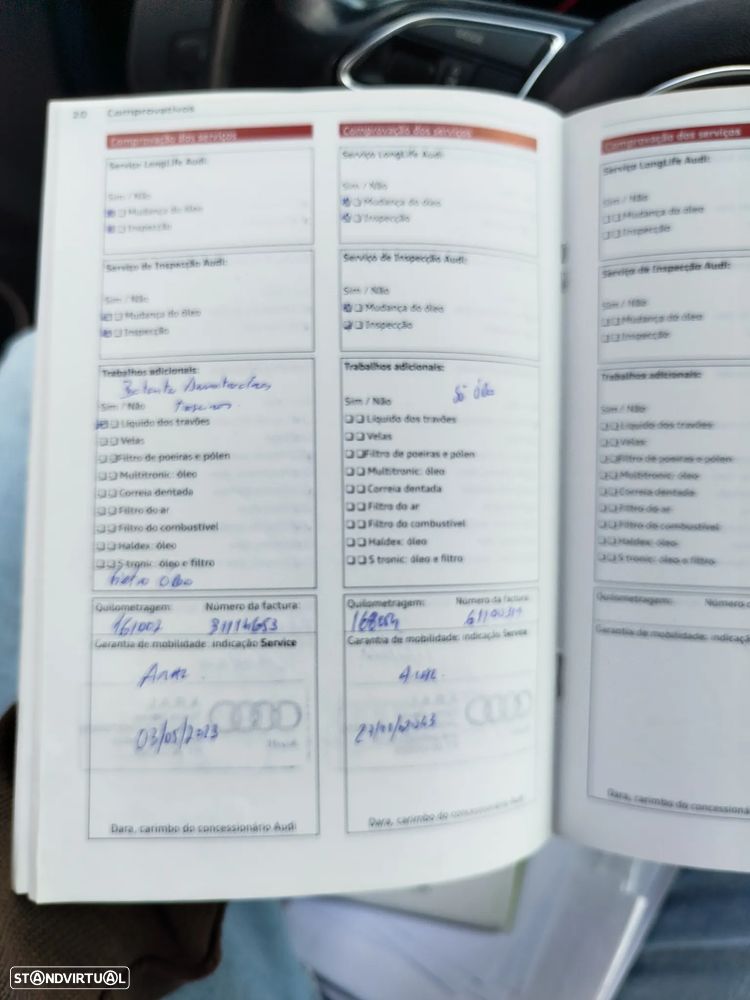 20 Comprovativos
Comprovação dos serviços
Serviço LongLife Audi:
Sim / Não
Mudança do óleo
Inspecção
Serviço de Inspecção Audi:
Sim / Não
Mudança do óleo
Inspecção
Trabalhos adicionais:
Sim / Não
Líquido dos travões
Velas
Filtro de poeiras e pólen
Multitronic: óleo
Correia dentada
Filtro do ar
Filtro do combustível
Haldex: óleo
S tronic: óleo e filtro
Filtro Óleo
Quilometragem: Número da factura:
161007 31114653
Garantia de mobilidade: indicação Service
03/05/2023
Data, carimbo do concessionário Audi
Comprovação dos serviços
Serviço LongLife Audi:
Sim / Não
Mudança do óleo
Inspecção
Serviço de Inspecção Audi:
Sim / Não
Mudança do óleo
Inspecção
Trabalhos adicionais:
Só Óleo
Sim / Não
Líquido dos travões
Velas
Filtro de poeiras e pólen
Multitronic: óleo
Correia dentada
Filtro do ar
Filtro do combustível
Haldex: óleo
S tronic: óleo e filtro
Quilometragem: Número da factura:
Garantia de mobilidade: indicação Service
Data, carimbo do concessionário Audi
Comprovação dos serviços
Serviço LongLife Audi:
Sim / Não
Mudança do óleo
Inspecção
Serviço de Inspecção Audi:
Sim / Não
Mudança do óleo
Inspecção
Trabalhos adicionais:
Sim / Não
Líquido dos travões
Velas
Filtro de poeiras e pólen
Multitronic: óleo
Correia dentada
Filtro do ar
Filtro do combustível
Haldex: óleo
S tronic: óleo e filtro
Quilometragem:
Garantia de mobilidade: indicação
Data, carimbo do concessionário
STANDVIRTUAL